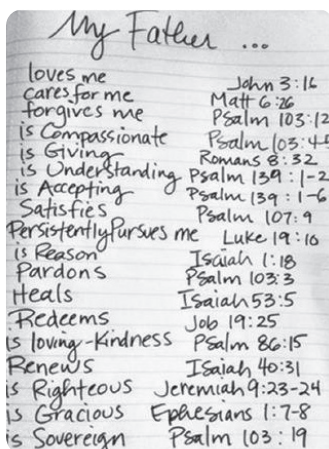 My Father ...
loves me John 3:16
cares for me Matt 6:26
forgives me Psalm 103:12
is Compassionate Psalm 103:4
is Giving Romans 8:32
is Understanding Psalm 139:1-2
is Accepting Psalm 139:1-6
Satisfies Psalm 107:9
Persistently Pursues me Luke 19:10
is Reason Isaiah 1:18
Pardons Psalm 103:3
Heals Isaiah 53:5
Redeems Job 19:25
is loving-Kindness Psalm 86:15
Renews Isaiah 40:31
is Righteous Jeremiah 9:23-24
is Gracious Ephesians 1:7-8
is Sovereign Psalm 103:19